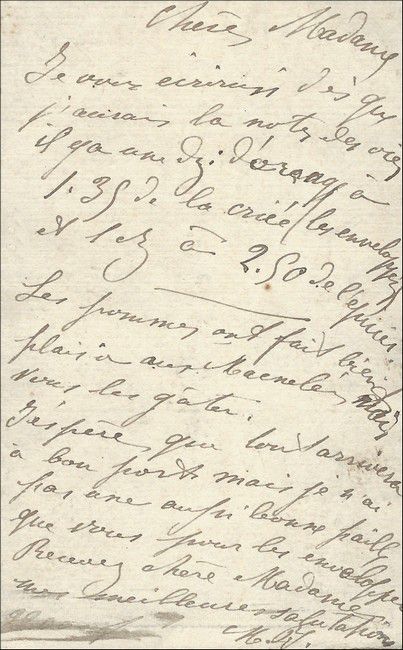 Chère Madame
Je vous écrirai dès que
j'aurais la note des
il y a une dz: d'orang à
1.35 de la criée les enveloppées
et 1 dz à 2.50 de l'épicier.
Les pommes ont fait bien
plaisir aux mais
vous les gâter.
J'espère que tout arrivera
à bon port mais je n'ai
pas une aussi bonne paille
que vous pour les envelopper
Recevez chère Madame
mes meilleures salutations